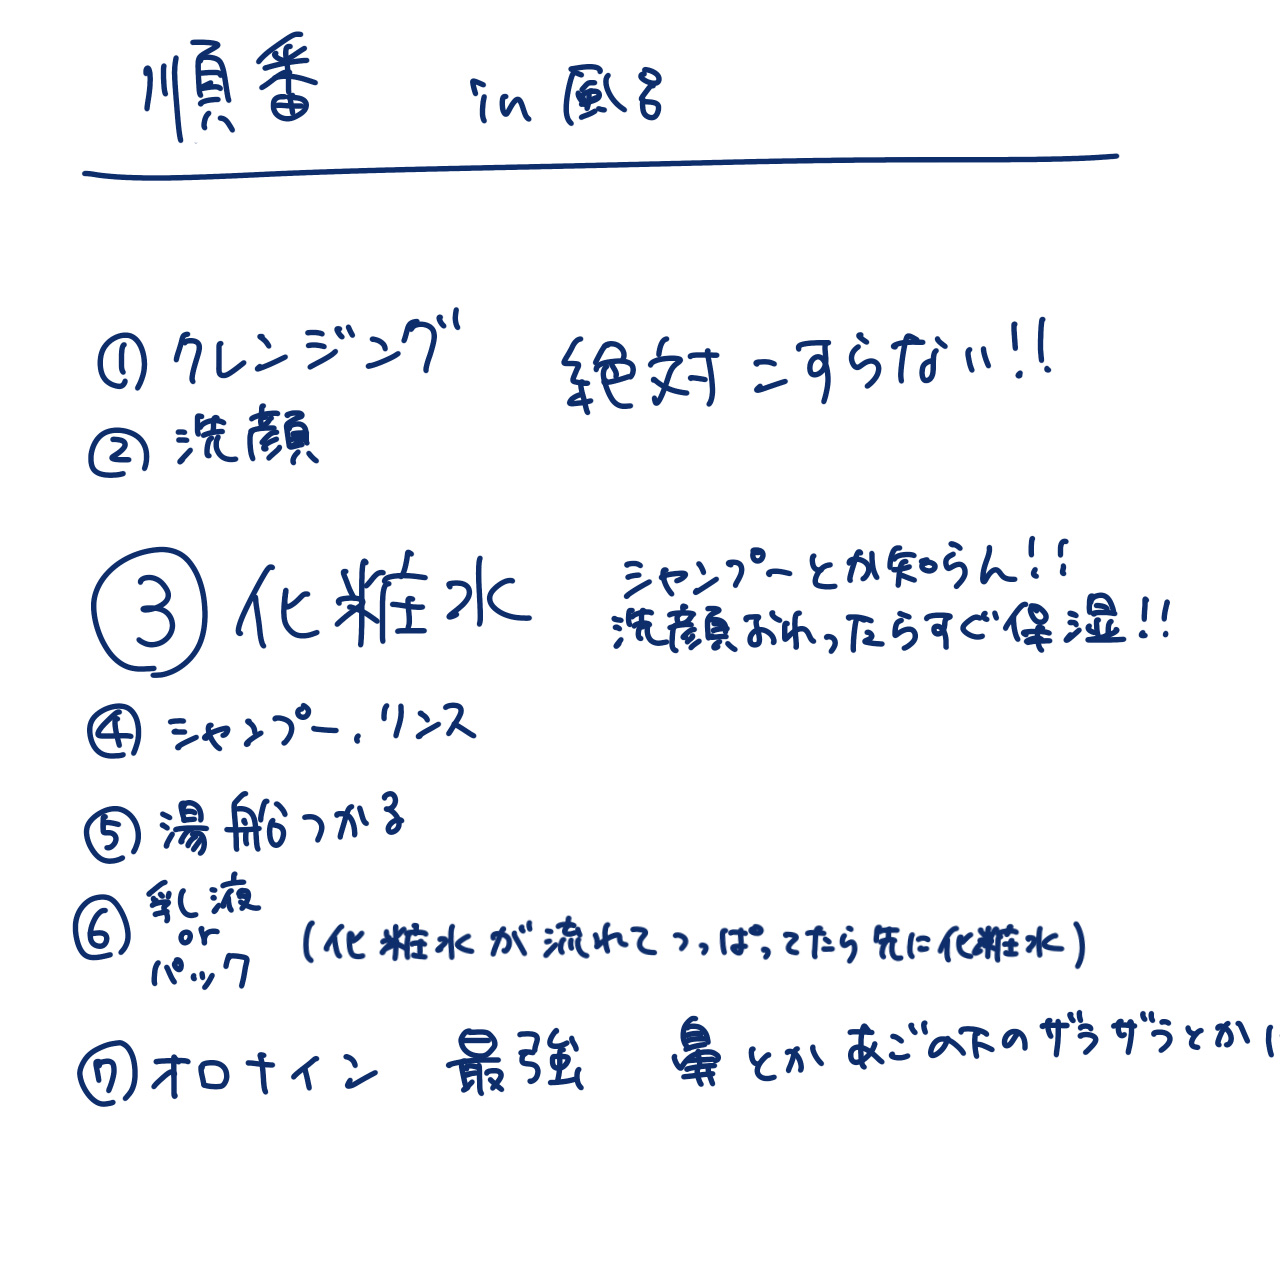 順番 in 風呂
① クレンジング 絶対こすらない!!
② 洗顔
③ 化粧水 シャンプーとか知らん!!
洗顔おわったらすぐ保湿!!
④ シャンプー.リンス
⑤ 湯船つかる
⑥ 乳液
or
パック
(化粧水が流れてつっぱってたら先に化粧水)
⑦ オロナイン 最強 鼻とかあごの下のザラザラとかに